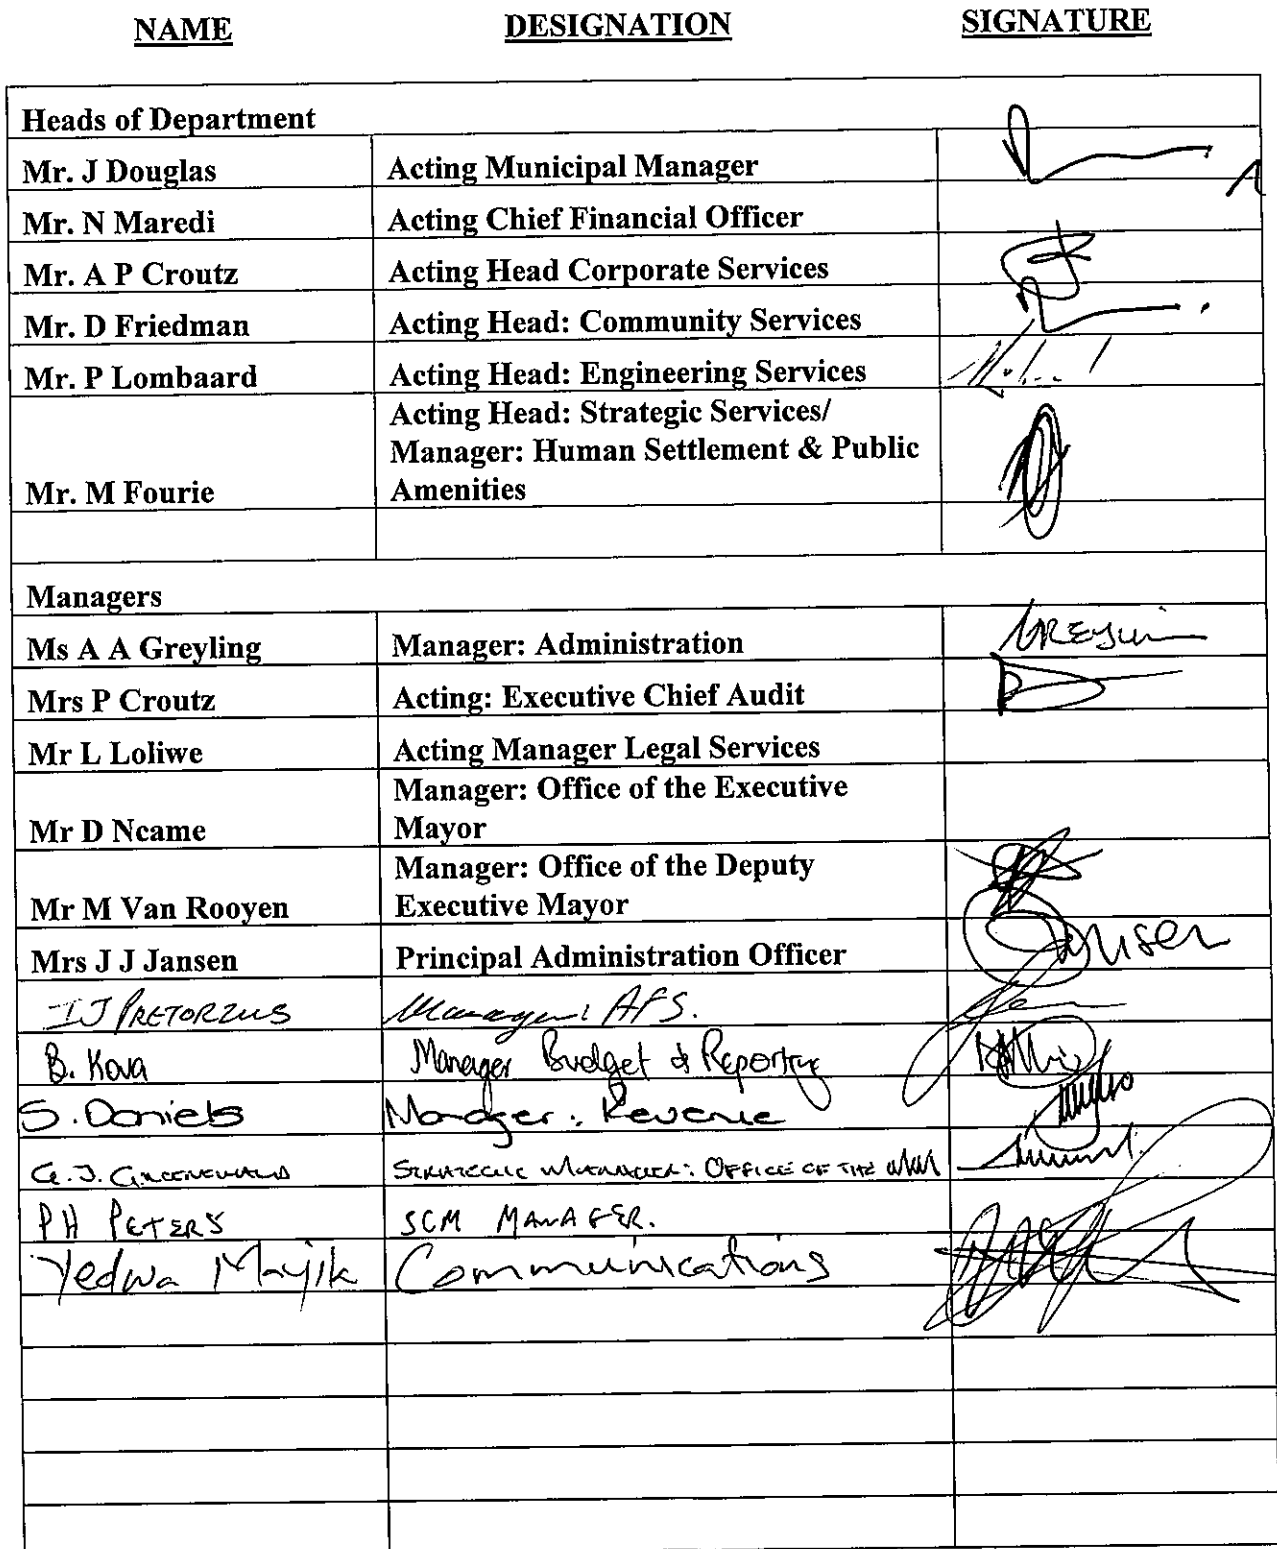 NAME DESIGNATION SIGNATURE
Heads of Department
Mr. J Douglas Acting Municipal Manager
Mr. N Maredi Acting Chief Financial Officer
Mr. A P Croutz Acting Head Corporate Services
Mr. D Friedman Acting Head: Community Services
Mr. P Lombaard Acting Head: Engineering Services
Acting Head: Strategic Services/
Manager: Human Settlement & Public
Mr. M Fourie Amenities
Managers
Ms A A Greyling Manager: Administration
Mrs P Croutz Acting: Executive Chief Audit
Mr L Loliwe Acting Manager Legal Services
Manager: Office of the Executive
Mr D Ncame Mayor
Manager: Office of the Deputy
Mr M Van Rooyen Executive Mayor
Mrs J J Jansen Principal Administration Officer Jansen
IJ PRETORIUS Manager: AFS.
B. Kova Manager Budget & Reporting
S. Daniels Manager: Revenue
G.J. GROENEWALD STRATEGIC MANAGER: OFFICE OF THE
PH PETERS SCM MANAGER.
Yedwa Majik Communications